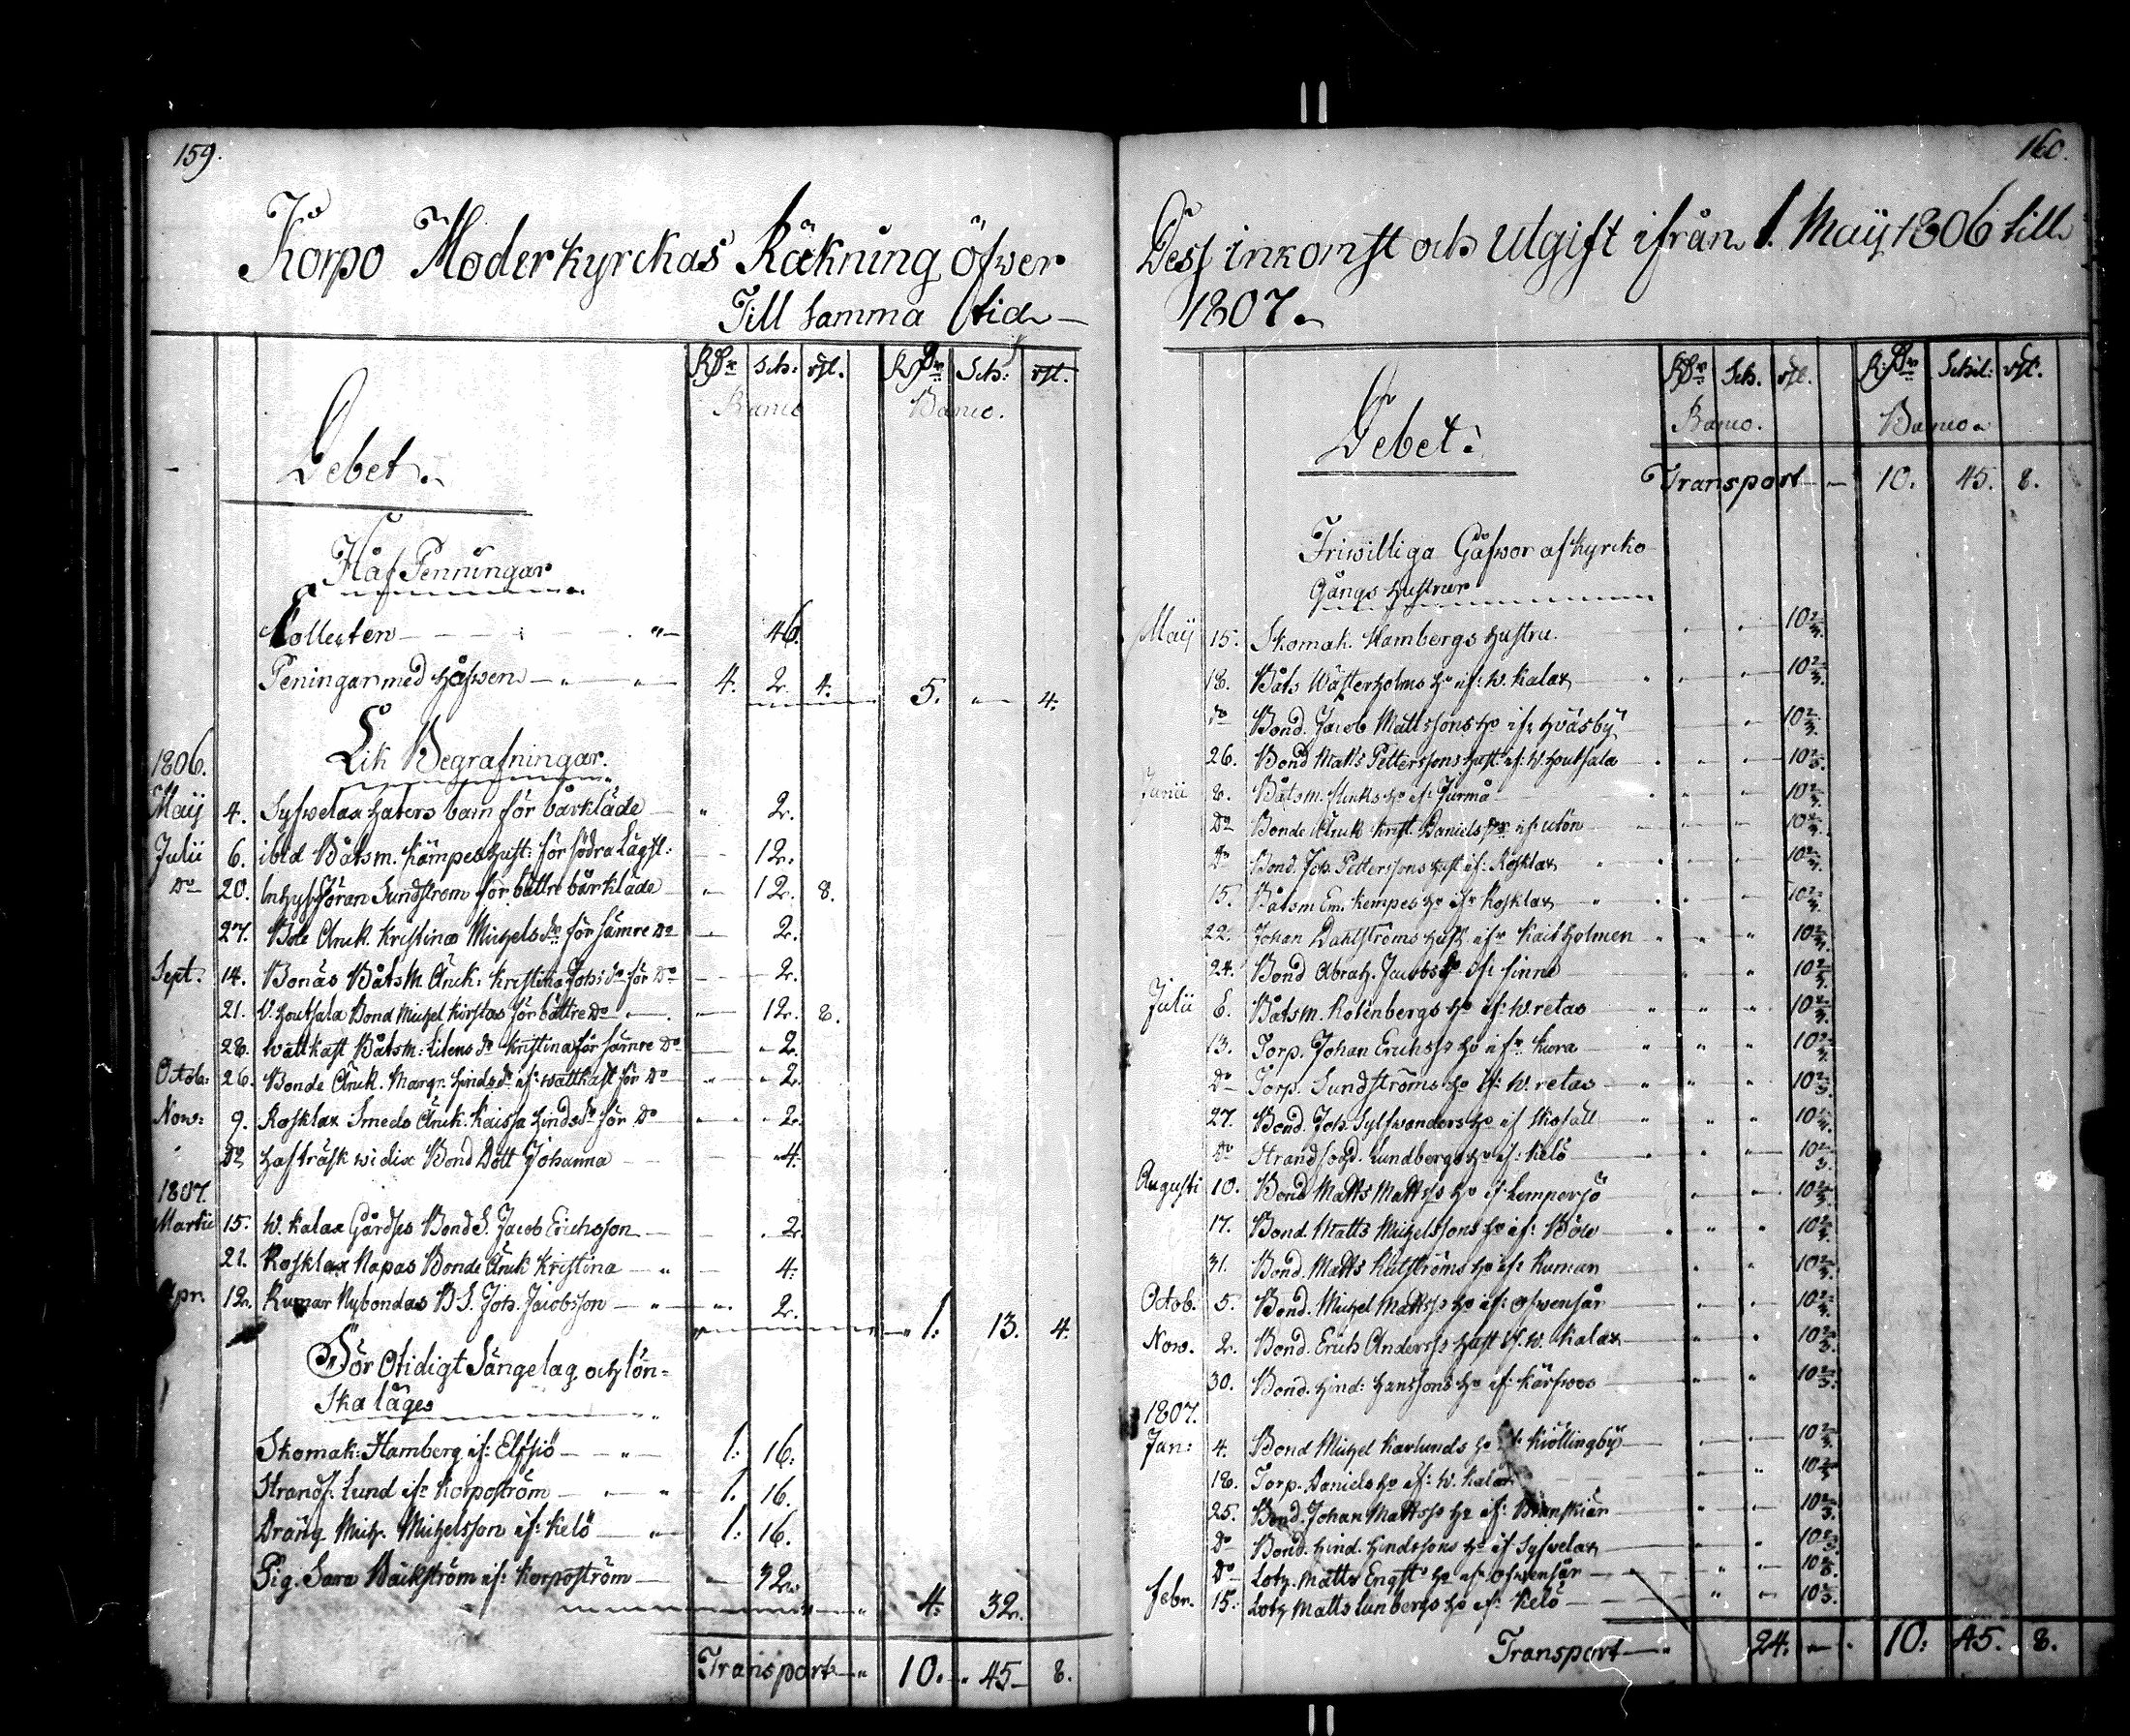 159.
Korpo Moderkyrckas Räkning öfwer
Till samma tid
Rdr Sch: rst. Rdr Sch: rst.
Banco Banco.
Debet.
Håf Penningar
Collecten 46.
Peningar med håfwen 4. 2. 4. 5. " 4.
Lik Begrafningar.
1806.
Maij 4. Syfwelax barn för bårkläde " 2.
Julii 6. ibid Båtsm. Kämpes hust: för södra Lägst: 12.
Do 20. Inhys Göran Sundström för bättre bårkläde 12. 8.
27. Änck. Kristina Michels dr för sämre Do 2.
Sept. 14. Bonäs Båtsm. Änck: Kristina Johs dr för Do 2.
21. V. Houtsala Bond Michel för bättre Do 12. 8.
28. Wattkast Båtsm: dr Kristina för sämre Do 2.
Octob: 26. Bonde Änck. Margr. Hinds dr if: Wattkast för Do 2.
Now: 9. Rosklax Smeds Änck. Kaissa Hinds dr för Do 2.
Do Bond Dott Johanna 4.
1807.
Martii 15. W. Kalax Gårdses Bond S. Jacob Erichsson 2.
21. Rosklax Napas Bonde Änck Kristina 4.
Apr. 12. Rumar Nybondas B S. Joh. Jacobsson 2. 1. 13. 4.
För Otidigt Sängelag och lön=
ska läges
Skomak: Hamberg if: Elfsjö 1. 16.
Strands. Lund ifr Korpoström 1. 16.
Dräng Mich. Michelsson if: Kelö 1. 16.
Pig. Sara Bäckström if: Korpoström 32. 4. 32.
Transport 10. 45 8.
160.
Dess inkomst och Utgift ifrån 1. Maij 1806 till
1807.
Rdr Sch. rst. Rdr Schil: rst.
Banco. Banco.
Debet:
Transport 10. 45. 8.
Friwilliga Gåfwor af Kyrcko
Gångs hustrur
Maij 15. Skomak. Hambergs hustru. 10 2/3.
18. Båts Wästerholms ho if: W. Kalax 10 2/3.
Do Bond. Jacob Mattssons ho ifr Hväsby 10 2/3.
26. Bond Matts Pettersson hust if: W. Houtsala 10 2/3.
Junii 8. Båtsm. ho if Jurmå 10 2/3.
Do Bonde Änck Krist. Daniels dr if: Utön 10 2/3.
Do Bond. Joh. Pettersons hust if: Rosklax 10 2/3.
15. Båtsm Em. Kempes ho ifr Rosklax 10 2/3.
22. Johan Dahlströms hust ifr Kaitholmen 10 2/3.
24. Bond Abrah. Jacobs ho if: Finnö 10 2/3.
Julii 6. Båtsm. Rosenbergs ho if: W. retas 10 2/3.
13. Torp. Johan Erichss ho ifr. 10 2/3.
Do Torp. Sundströms ho if: W. retas 10 2/3.
27. Bond. Joh. Sylfwanders ho if 10 2/3.
Do Lundbergs ho if: Kelö 10 2/3.
Augusti 10. Bond Matts Mattss ho if: Lempersjö 10 2/3.
17. Bond Matts Michelssons ho if: 10 2/3.
31. Bond. Matts ho ifr Rumar 10 2/3.
Octob. 5. Bond. Michel Mattss ho if: Ofwensår 10 2/3.
Now. 2. Bond. Erich Anderss hust if. W. Kalax 10 2/3.
30. Bond. Hind: Hanssons ho if: 10 2/3.
1807.
Jan: 4. Bond Michel Karlunds ho 10 2/3.
18. Torp. Daniels ho if: W. Kalax 10 2/3
25. Bond. Johan Mattss ho if: 10 2/3.
Do Bond. Hind. Hindssons ho if Syfwelax 10 2/3.
Do Lotz. Matts Engst ho ifr Ofwensår 10 2/3.
Febr. 15. Lotz Matts Lunbergs ho ifr Kelö 10 2/3.
Transport 24. 10. 45. 8.